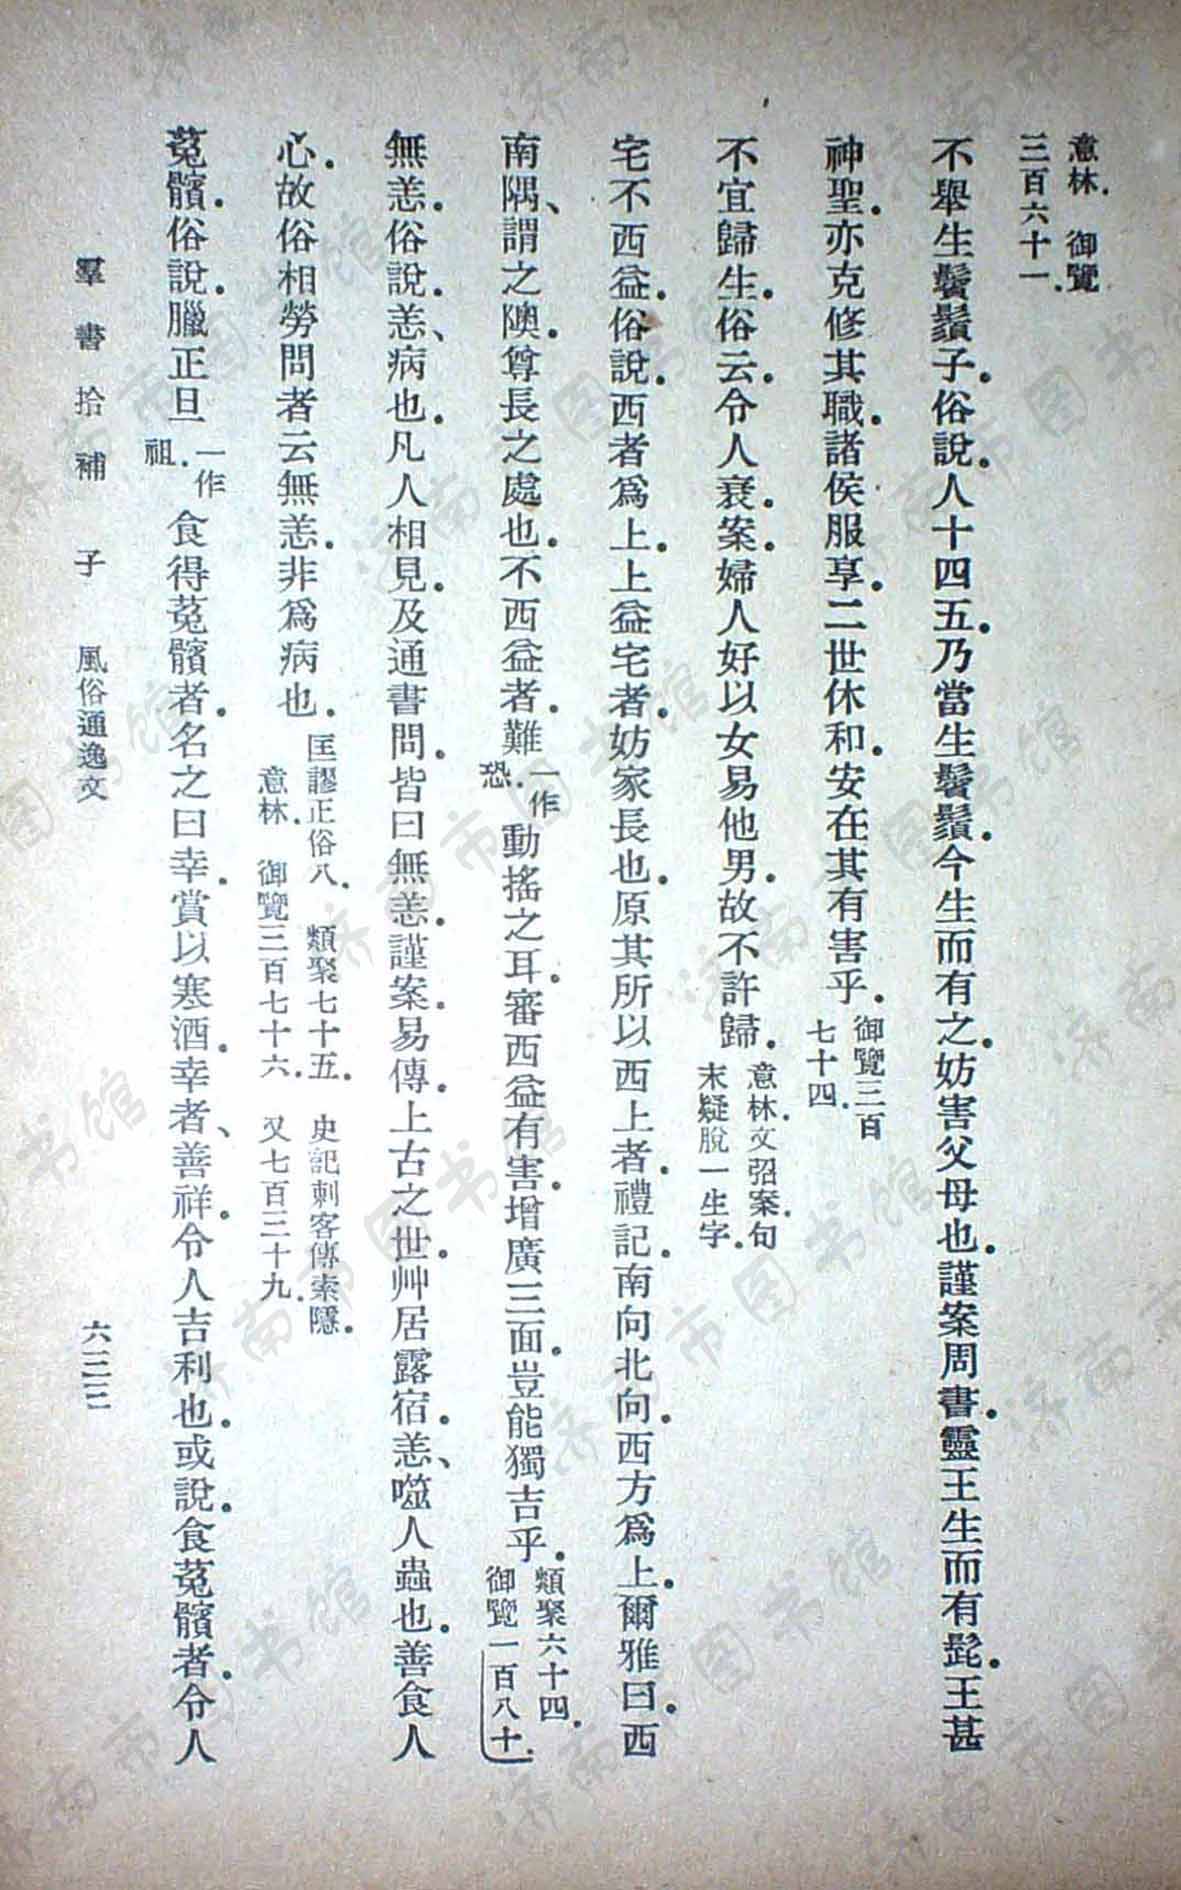 意林．　御覽
三百六十一．
不舉生鬢鬚子．俗說．人十四五．乃當生鬢鬚．今生而有之．妨害父母也．謹案周書．靈王生而有髭．王甚
神聖．亦克修其職．諸侯服享．二世休和．安在其有害乎．御覽三百
七十四．
不宜歸生．俗云．令人衰．案．婦人好以女易他男．故不許歸．意林．文弨案．句
末疑脫一生字．
宅不西益．俗說．西者爲上．上益宅者．妨家長也．原其所以西上者．禮記．南向北向．西方爲上．爾雅曰．西
南隅、謂之隩．尊長之處也．不西益者．難一作
恐．動搖之耳．審西益有害．增廣三面．豈能獨吉乎．類聚六十四．
御覽一百八十．
無恙．俗說．恙、病也．凡人相見．及通書問．皆曰無恙．謹案．易傳．上古之世．艸居露宿．恙、噬人蟲也．善食人
心．故俗相勞問者云無恙．非爲病也．匡謬正俗八．　類聚七十五．　史記刺客傳索隱．
意林．　御覽三百七十六．　又七百三十九．
菟髕．俗說．臘正旦一作
祖．食得菟髕者．名之曰幸．賞以寒酒．幸者、善祥．令人吉利也．或說．食菟髕者．令人
羣書拾補　子　風俗通逸文　六三三